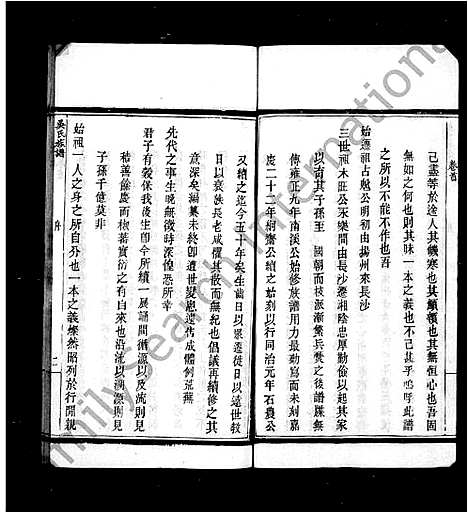 卷首
己盡等於途人其饑寒也吾其顛頓也其無恒心也吾固
無如之何也則其昧一本之義也不己甚乎嗚呼此譜
之所以不能不作也
始遷祖古魁公明初由揚州來長沙
三世祖木旺公永樂間由長沙遷湘陰忠厚勤儉以起其家
以有其子孫至 國朝而枝派漸繁兵燹之後譜牒無
傳雍正九年南溪公始修族譜用力最勤寫而未刻嘉
慶二十二年 公續之始刻以行同治元年石農公
又續之迄今五十年矣生齒日以眾遷徙日以遠世教
日以衰族長老咸懼其散而無紀也倡議再續修之其
意深矣編纂未終卽遭世變 成體例荒蕪
先代之事生晚無徵時深惶恐所幸
君子有穀保我後生卽令所續一展誦間循源以及流則見
積善餘慶而椒蕃實衍之有自來也沿流以溯源則見
子孫千億莫非
始祖一人之身之所自分也一本之義燦然昭列於行間親
吳氏族譜
序
二
FamilySearch International